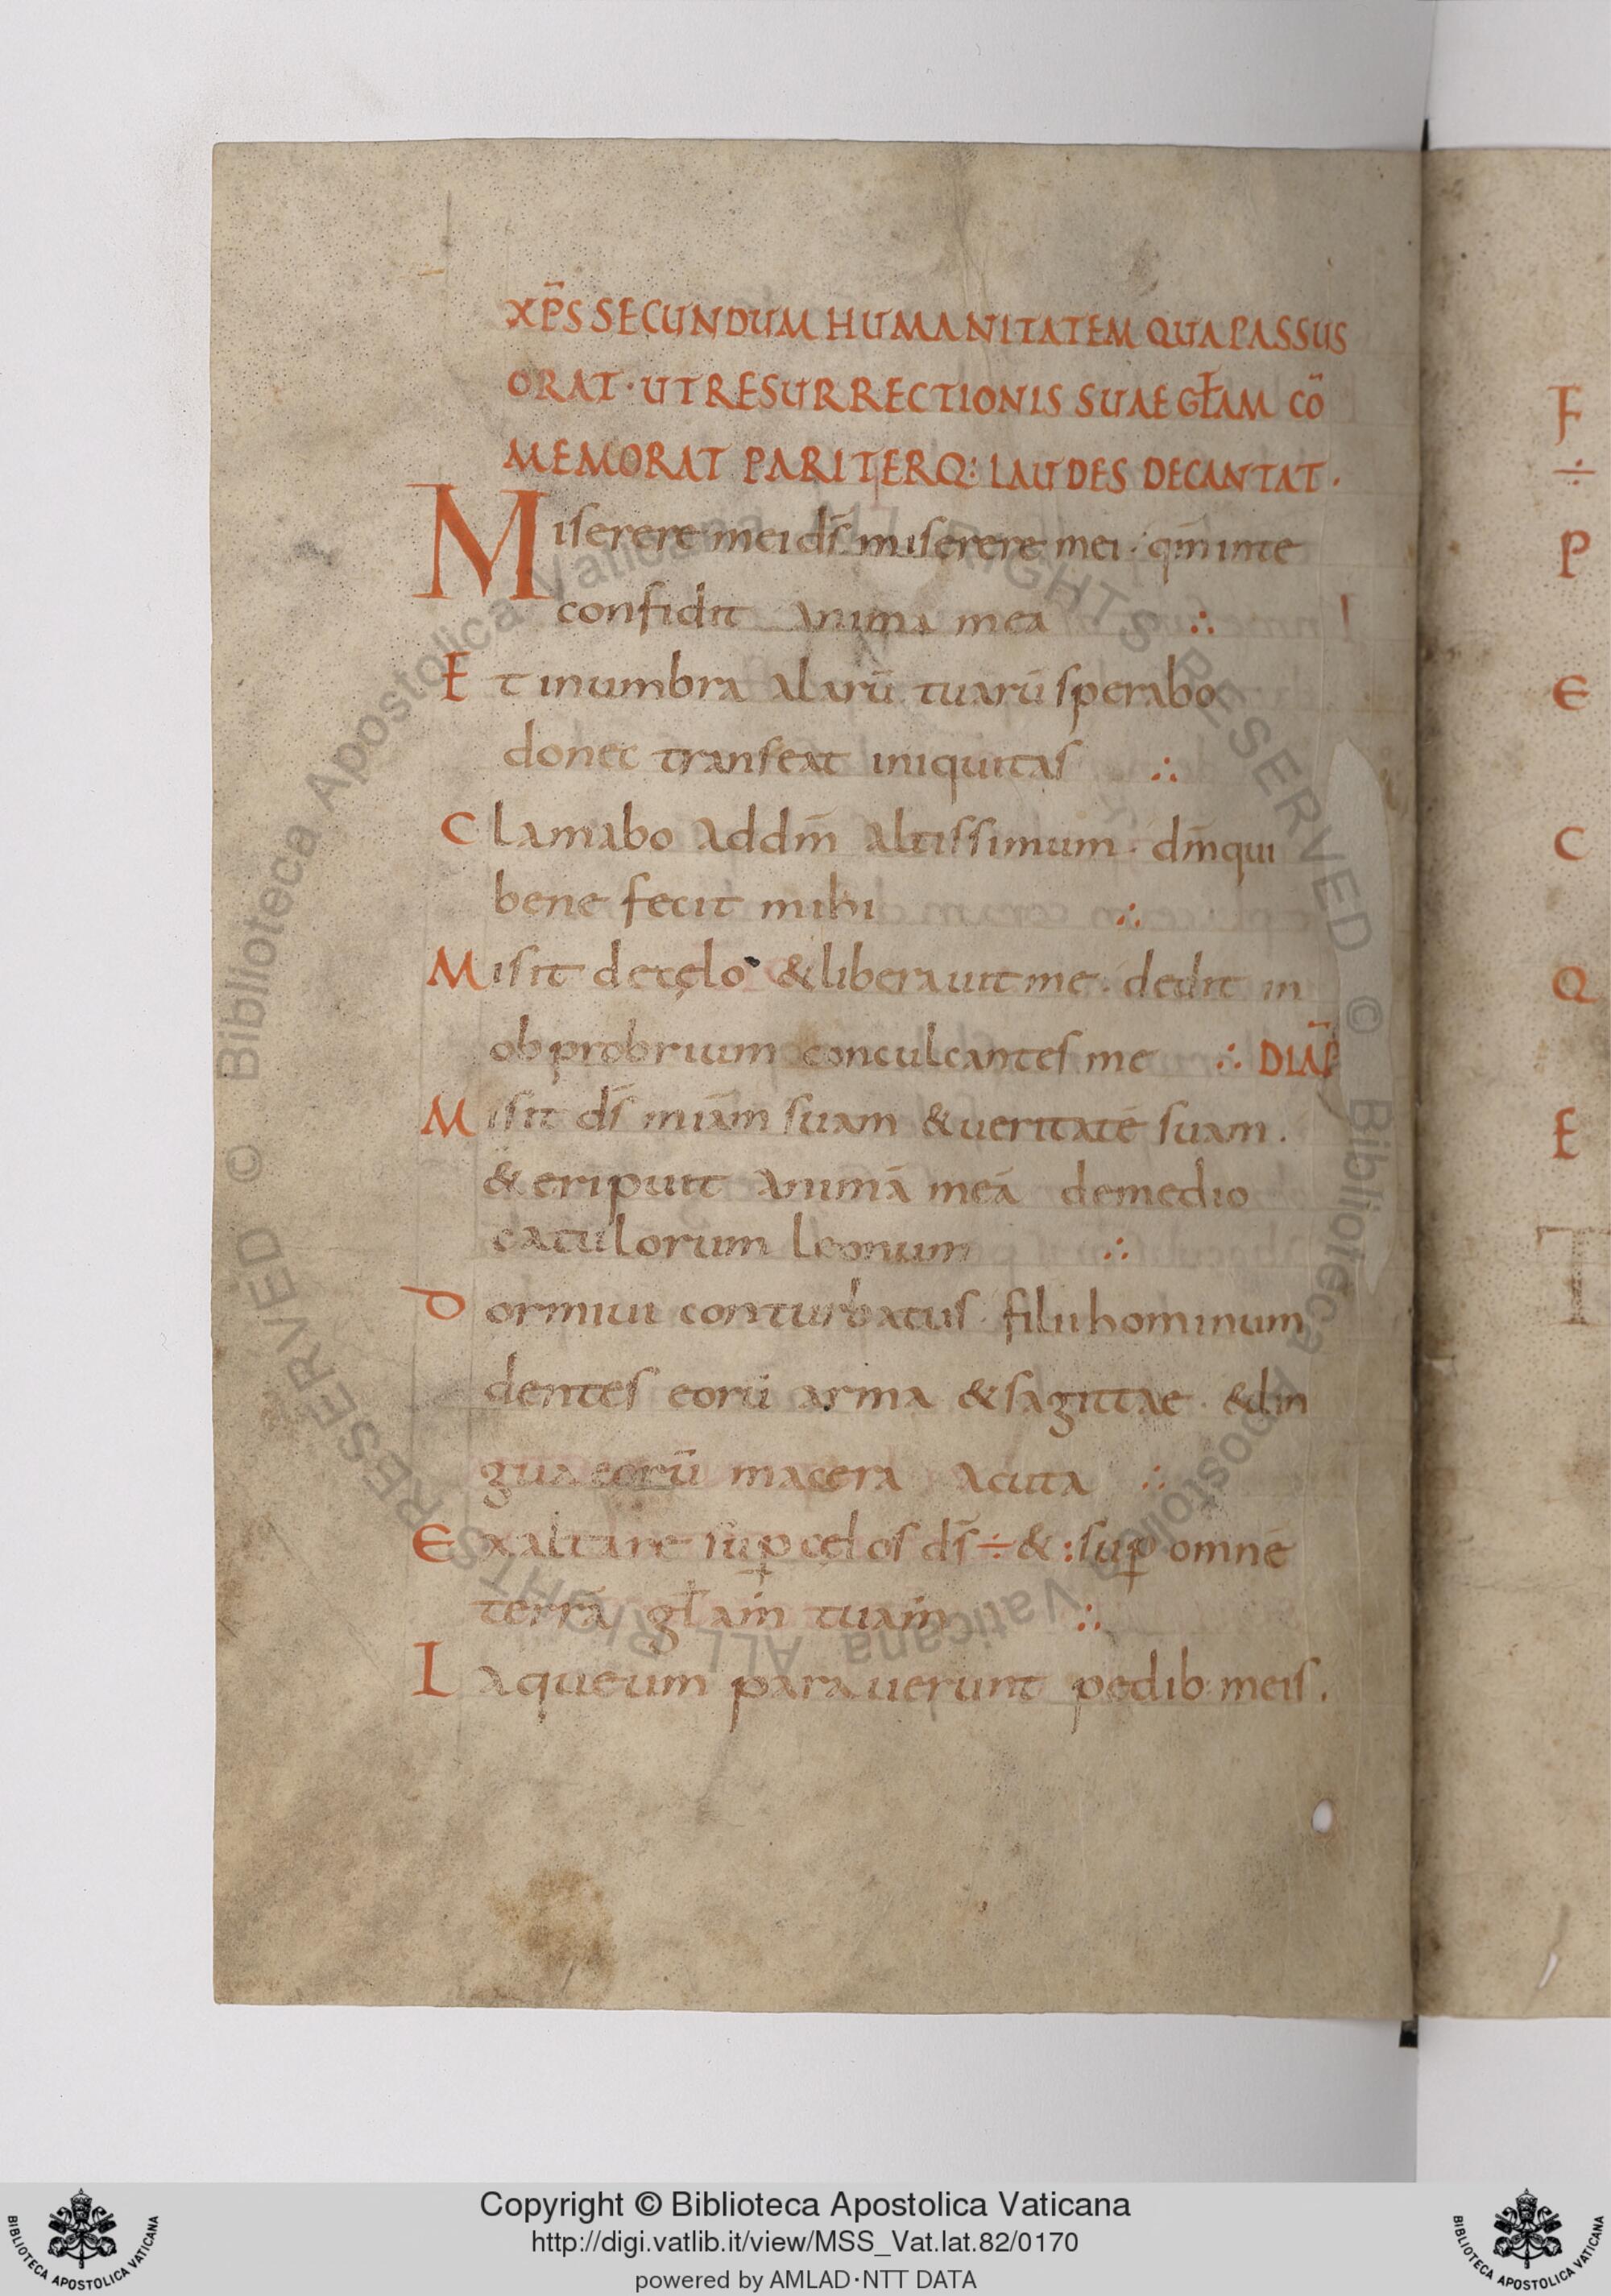 XP̄S SECUNDUM HUMANITATEM QUA PASSUS
ORAT · UT RESURRECTIONIS SUAE GŁAM CŌ
MEMORAT PARITERQ: LAUDES DECANTAT ·
Miserere mei d̄s miserere mei · qm̄ inte
confidit anima mea ∴
Et inumbra alarū tuarū sperabo
donec transeat iniquitas ∴
Clamabo addm̄ altissimum · dm̄ qui
bene fecit mihi ∴
Misit decęlo & liberauit me · dedit in
obprobrium conculcantes me ∴ DIAP̄
Misit d̄s miam̄ suam & ueritatē suam .
& eripuit animā meā demedio
catulorum leonum ∴
Dormiui conturbatus · filii hominum
dentes eorū arma & sagittae · & lin
gua eorū macera acuta ∴
Exaltare sup̱ cęlos d̄s ÷ & : sup̱ omnē
terrā głam tuam ∴
Laqueum parauerunt pedib: meis .
F
÷
P
E
C
Q
E
Copyright © Biblioteca Apostolica Vaticana
http://digi.vatlib.it/view/MSS_Vat.lat.82/0170
powered by AMLAD·NTT DATA
BIBLIOTECA APOSTOLICA VATICANA
BIBLIOTECA APOSTOLICA VATICANA
© Biblioteca Apostolica Vaticana ALL RIGHTS RESERVED © Biblioteca Apostolica Vaticana ALL RIGHTS RESERVED